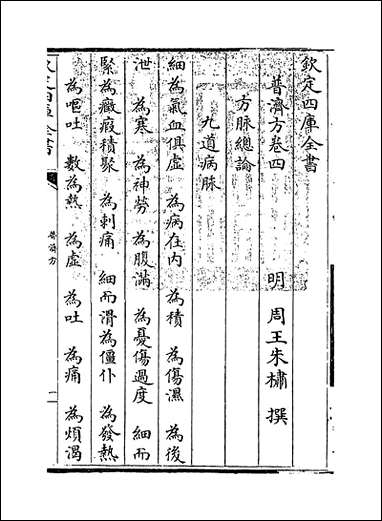 欽定四庫全書
普濟方卷四
明 周王朱橚 撰
方脉總論
九道病脉
細為氣血俱虛 為病在内 為積 為傷濕 為後
泄 為寒 為神勞 為腹滿 為憂傷過度 細而
緊為癥瘕積聚 為刺痛 細而滑為僵仆 為發熱
為嘔吐 數為熱 為虛 為吐 為痛 為煩渴
普濟方
一